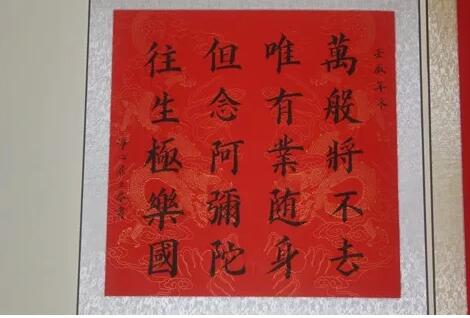 萬般將不去
唯有業随身
但念阿彌陀
往生極樂國